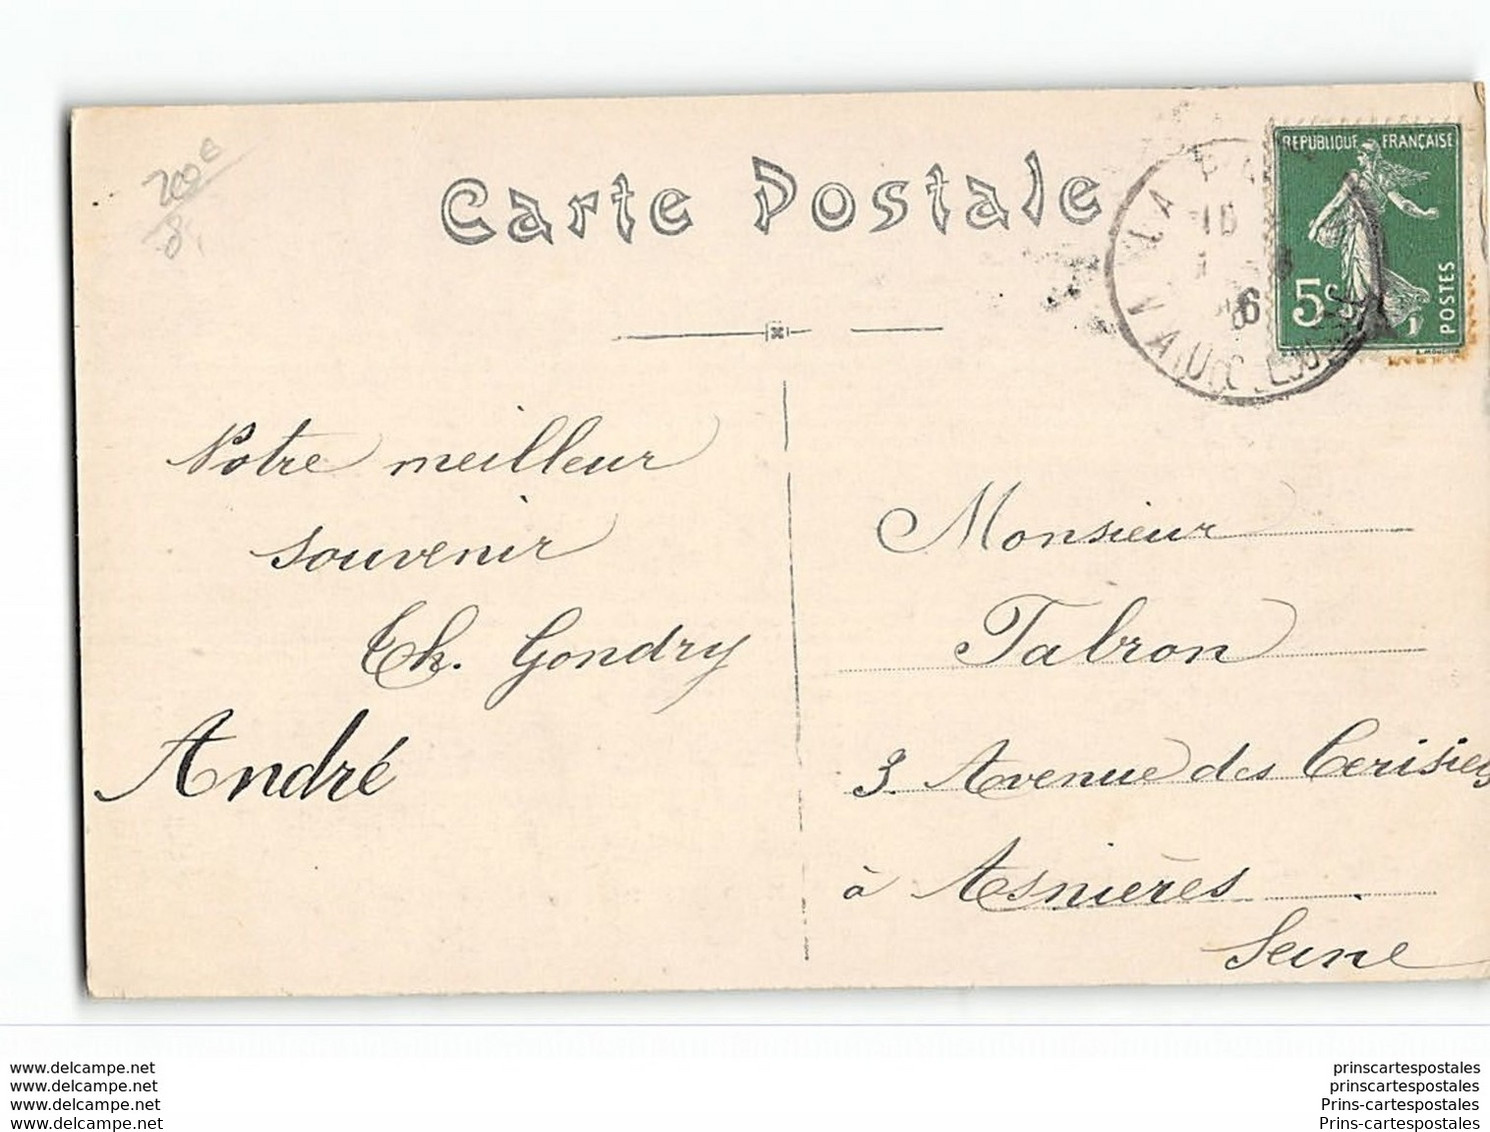 Carte Postale
REPUBLIQUE FRANÇAISE
5c
POSTES
Notre meilleur
souvenir
Th. Gondry
André
Monsieur
Tabron
3. Avenue des Cerisiers
à Asnières
Seine
www.delcampe.net
www.delcampe.net
www.delcampe.net
www.delcampe.net
prinscartespostales
prinscartespostales
Prins-cartespostales
Prins-cartespostales